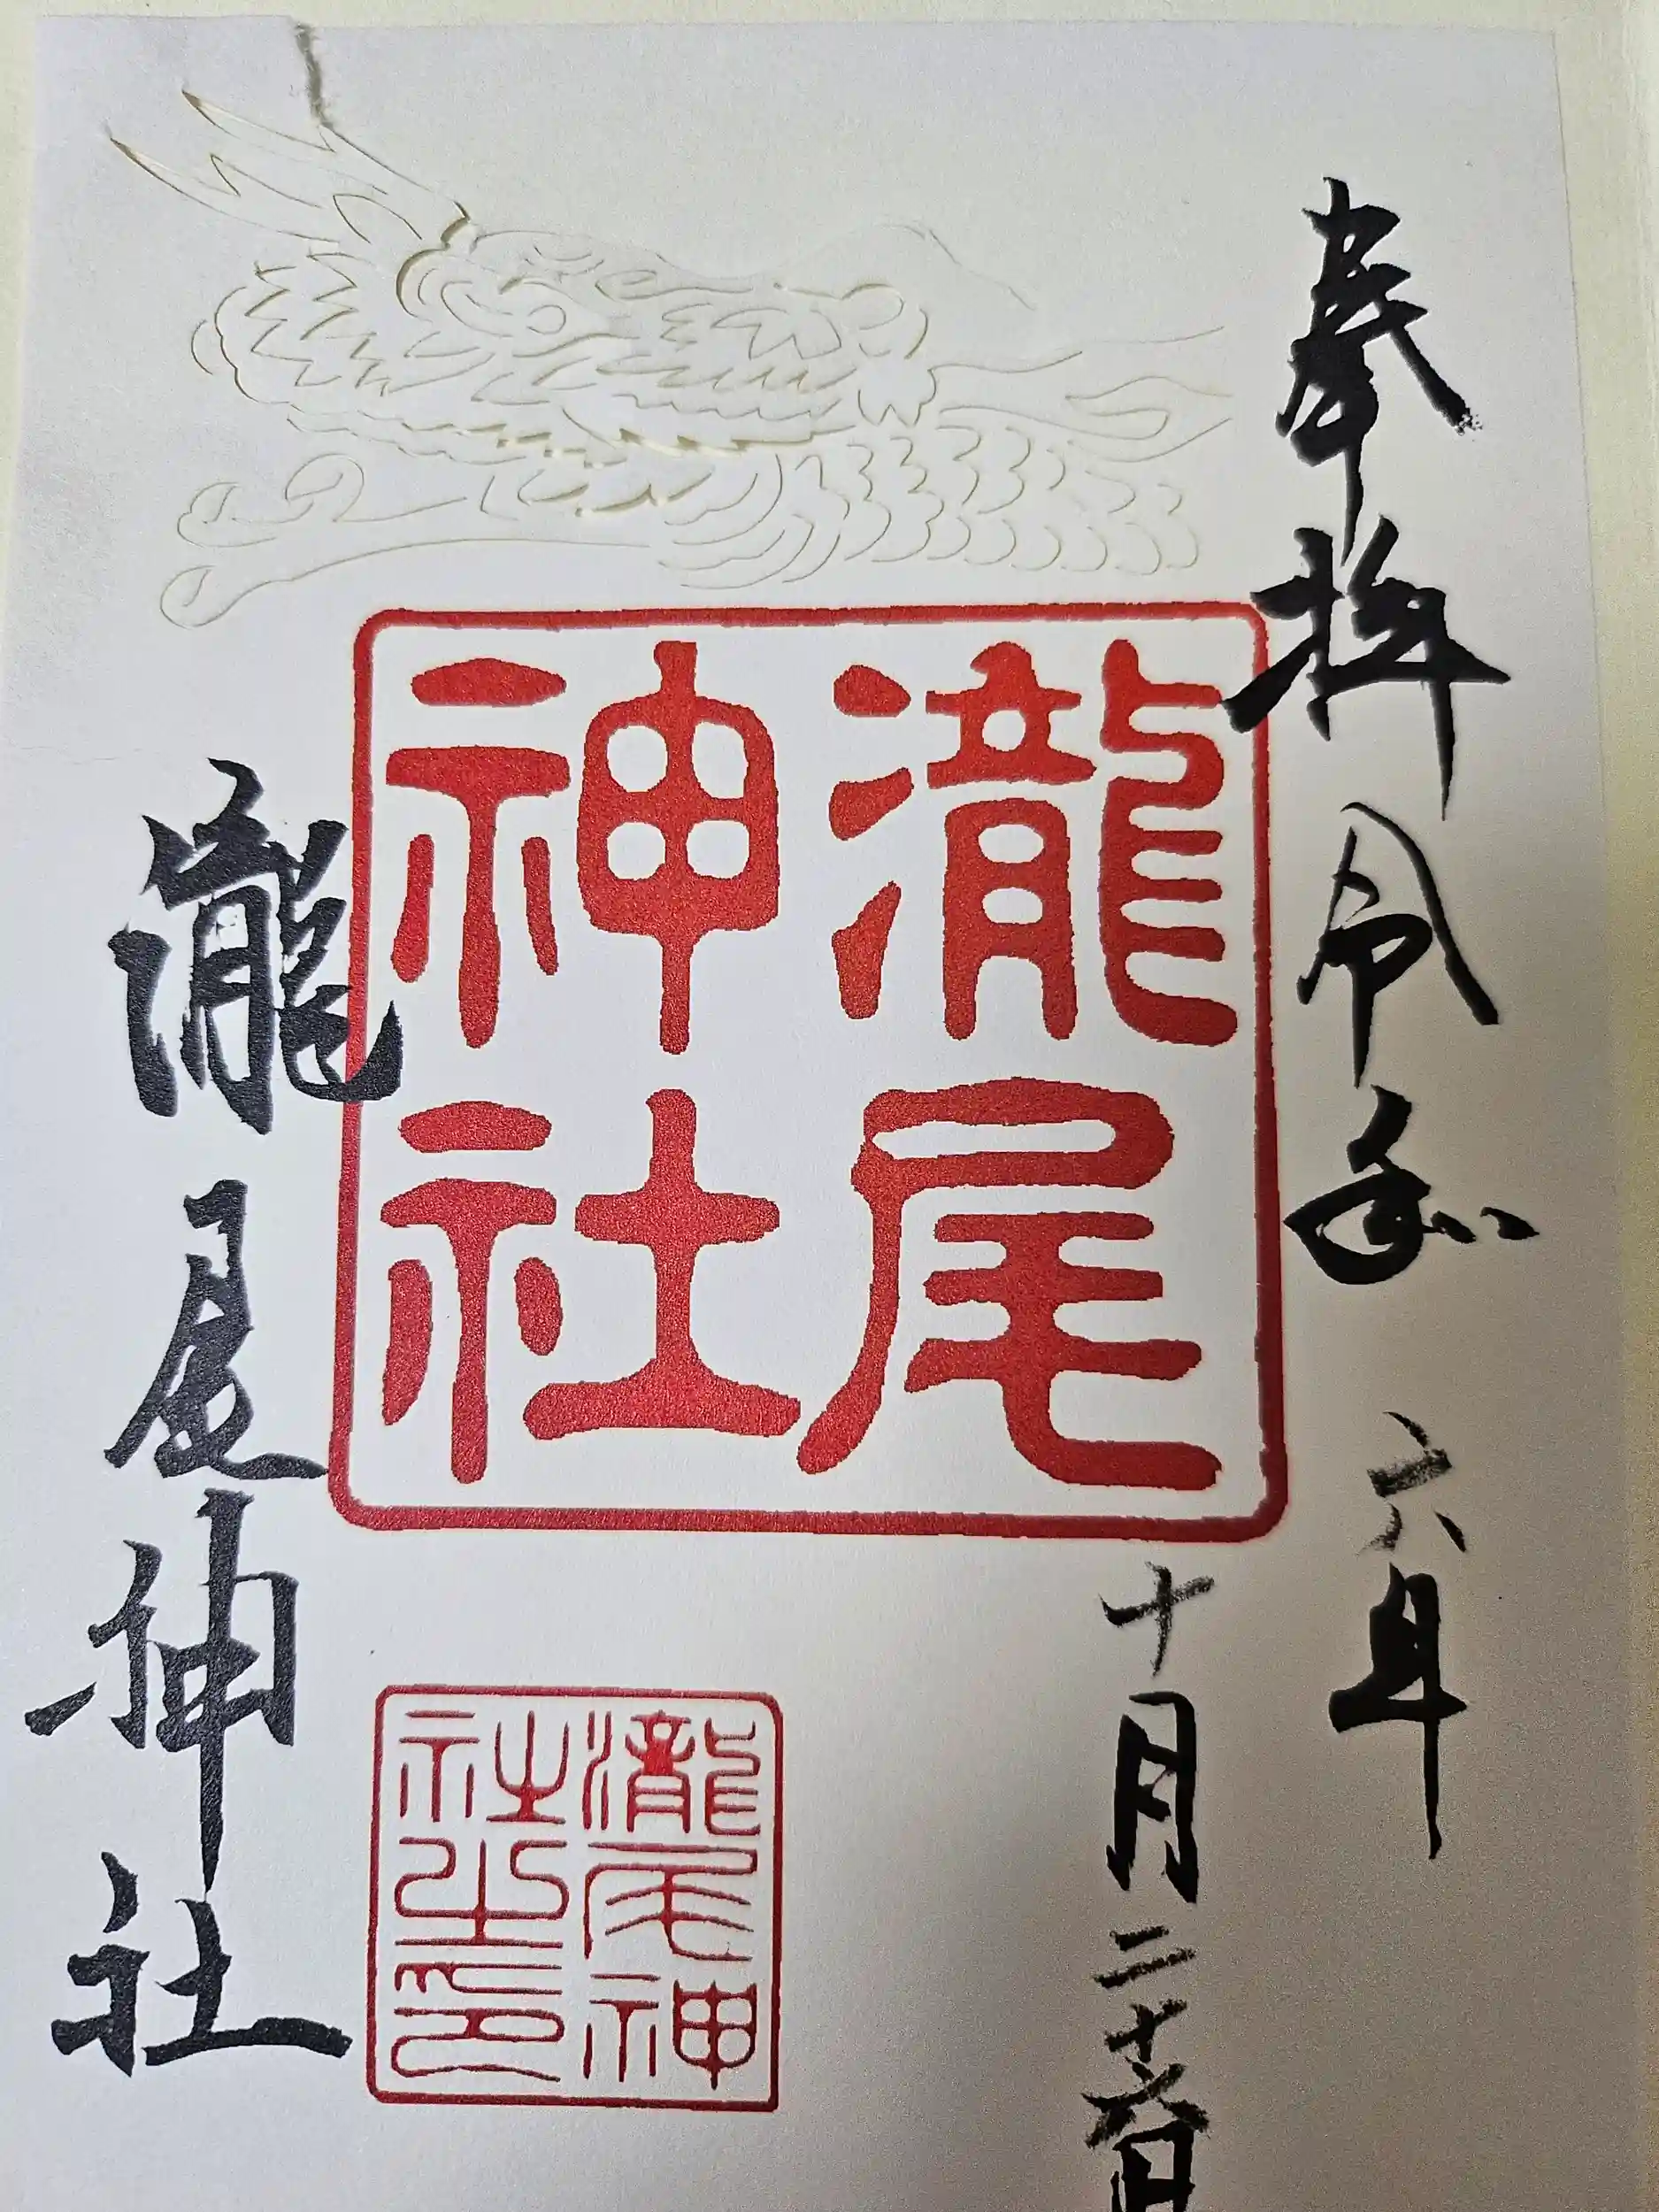 奉拝 令和六年
十月二十六日
瀧尾
神社
瀧尾神
社之印
瀧尾神社